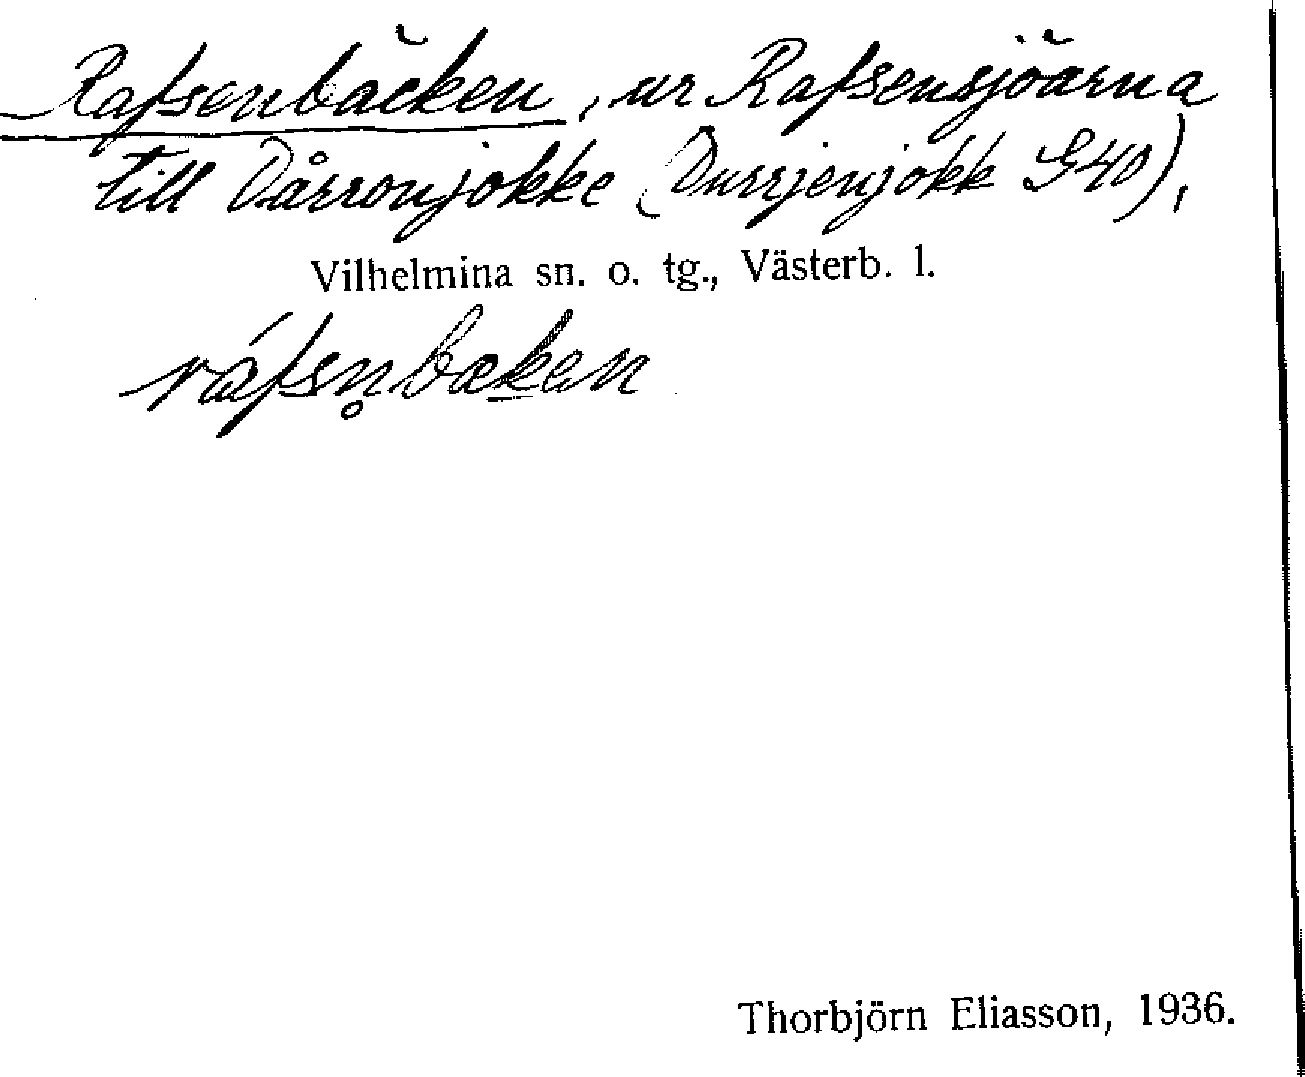 Rafsenbäcken, ur Rafsensjöarna
till Dårronjokke (Durrjenjokk G40),
Vilhelmina sn. o. tg., Västerb. l.
ráfsn̥bæken
Thorbjörn Eliasson, 1936.